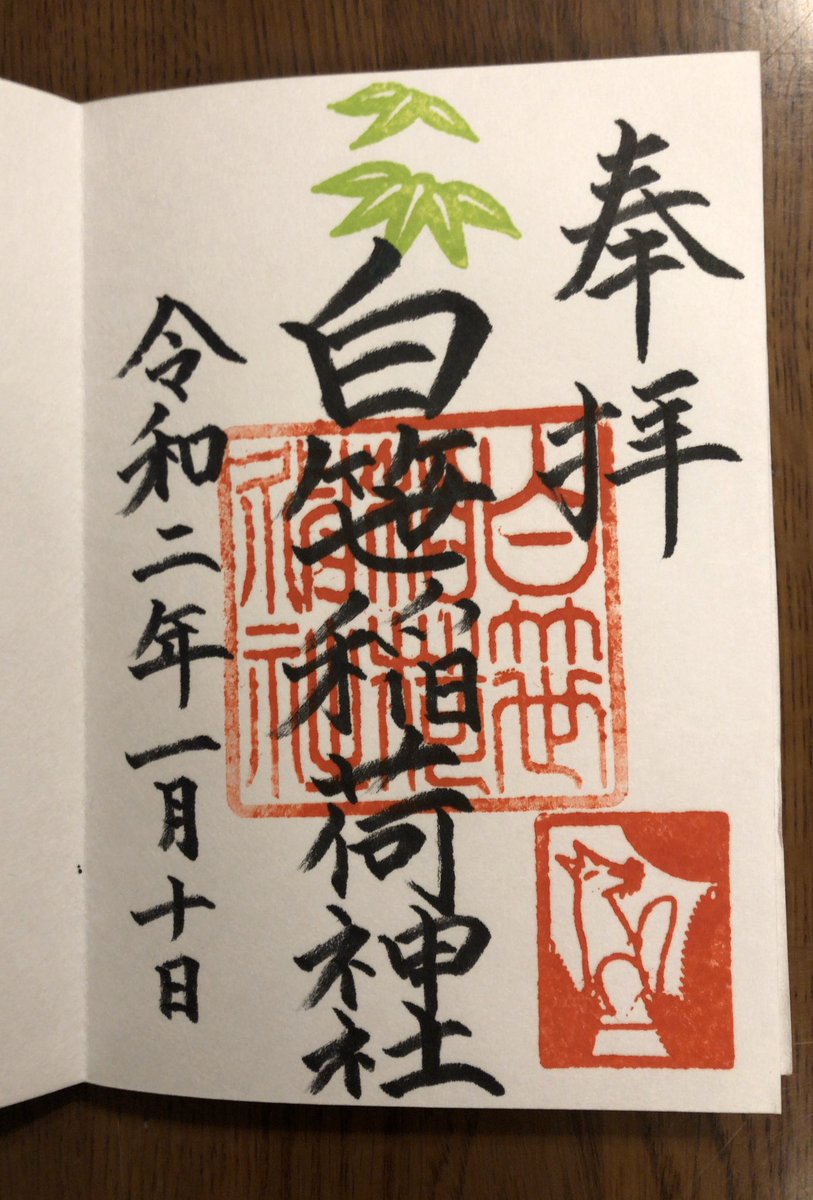 奉拝
白笹稲荷神社
令和二年一月十日
白笹
稲荷
神社